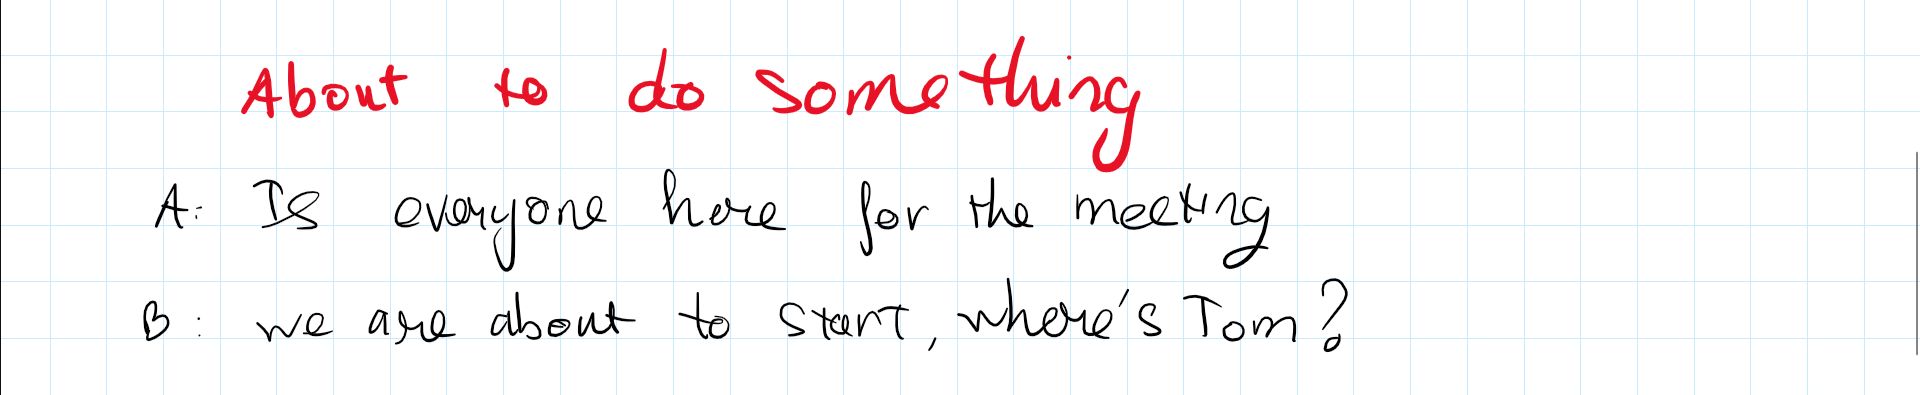 About to do something
A: Is everyone here for the meeting
B: we are about to start, where's Tom?